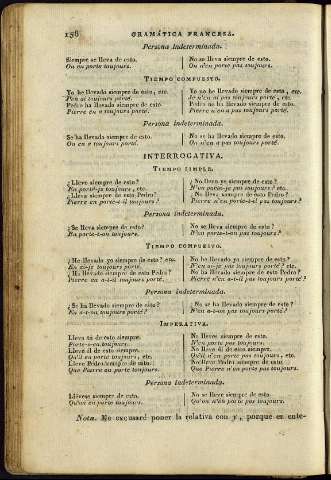 158 GRAMÁTICA FRANCESA.
Persona Indeterminada.
Siempre se lleva de esto. No se lleva siempre de esto.
On en porte toujours. On n'en porte pas toujours.
TIEMPO COMPUESTO.
Yo he llevado siempre de esto, etc. Yo no he llevado siempre de esto, etc.
J'en ai toujours porté. Je n'en ai pas toujours porté, etc.
Pedro ha llevado siempre de esto. Pedro no ha llevado siempre de esto.
Pierre en a toujours porté. Pierre n'en a pas toujours porté.
Persona indeterminada.
Se ha llevado siempre de esto. No se ha llevado siempre de esto.
On en a toujours porté. On n'en a pas toujours porté.
INTERROGATIVA.
TIEMPO SIMPLE.
¿Llevo siempre de esto? ¿No llevo yo siempre de esto?
En porté-je toujours, etc. N'en porté-je pas toujours? etc.
¿Lleva siempre de esto Pedro? ¿No lleva siempre de esto Pedro?
Pierre en porte-t-il toujours? Pierre n'en porte-t-il pas toujours?
Persona indeterminada.
¿Se lleva siempre de esto? ¿No se lleva siempre de esto?
En porte-t-on toujours. N'en porte-t-on pas toujours?
TIEMPO COMPUESTO.
¿He llevado yo siempre de esto? etc. ¿No he llevado yo siempre de esto? etc.
En ai-je toujours porté. N'en ai-je pas toujours porté? etc.
¿Ha llevado siempre de esto Pedro? ¿No ha llevado siempre de esto Pedro?
Pierre en a-t-il toujours porté? Pierre n'en a-t-il pas toujours porté?
Persona indeterminada.
¿Se ha llevado siempre de esto? ¿No se ha llevado siempre de esto?
En a-t-on toujours porté? N'en a-t-on pas toujours porté?
IMPERATIVA.
Lleva tú de esto siempre. No lleves siempre de esto.
Portes-en toujours. N'en porte pas toujours.
Lleve él de esto siempre. No lleve él de esto siempre.
Qu'il en porte toujours, etc. Qu'il n'en porte pas toujours, etc.
Lleve Pedro siempre de esto. No lleve Pedro siempre de esto.
Que Pierre en porte toujours. Que Pierre n'en porte pas toujours.
Persona indeterminada.
Llévese siempre de esto. No se lleve siempre de esto.
Qu'on en porte toujours. Qu'on n'en porte pas toujours.
Nota. Me excusaré poner la relativa con y, porque en ente-